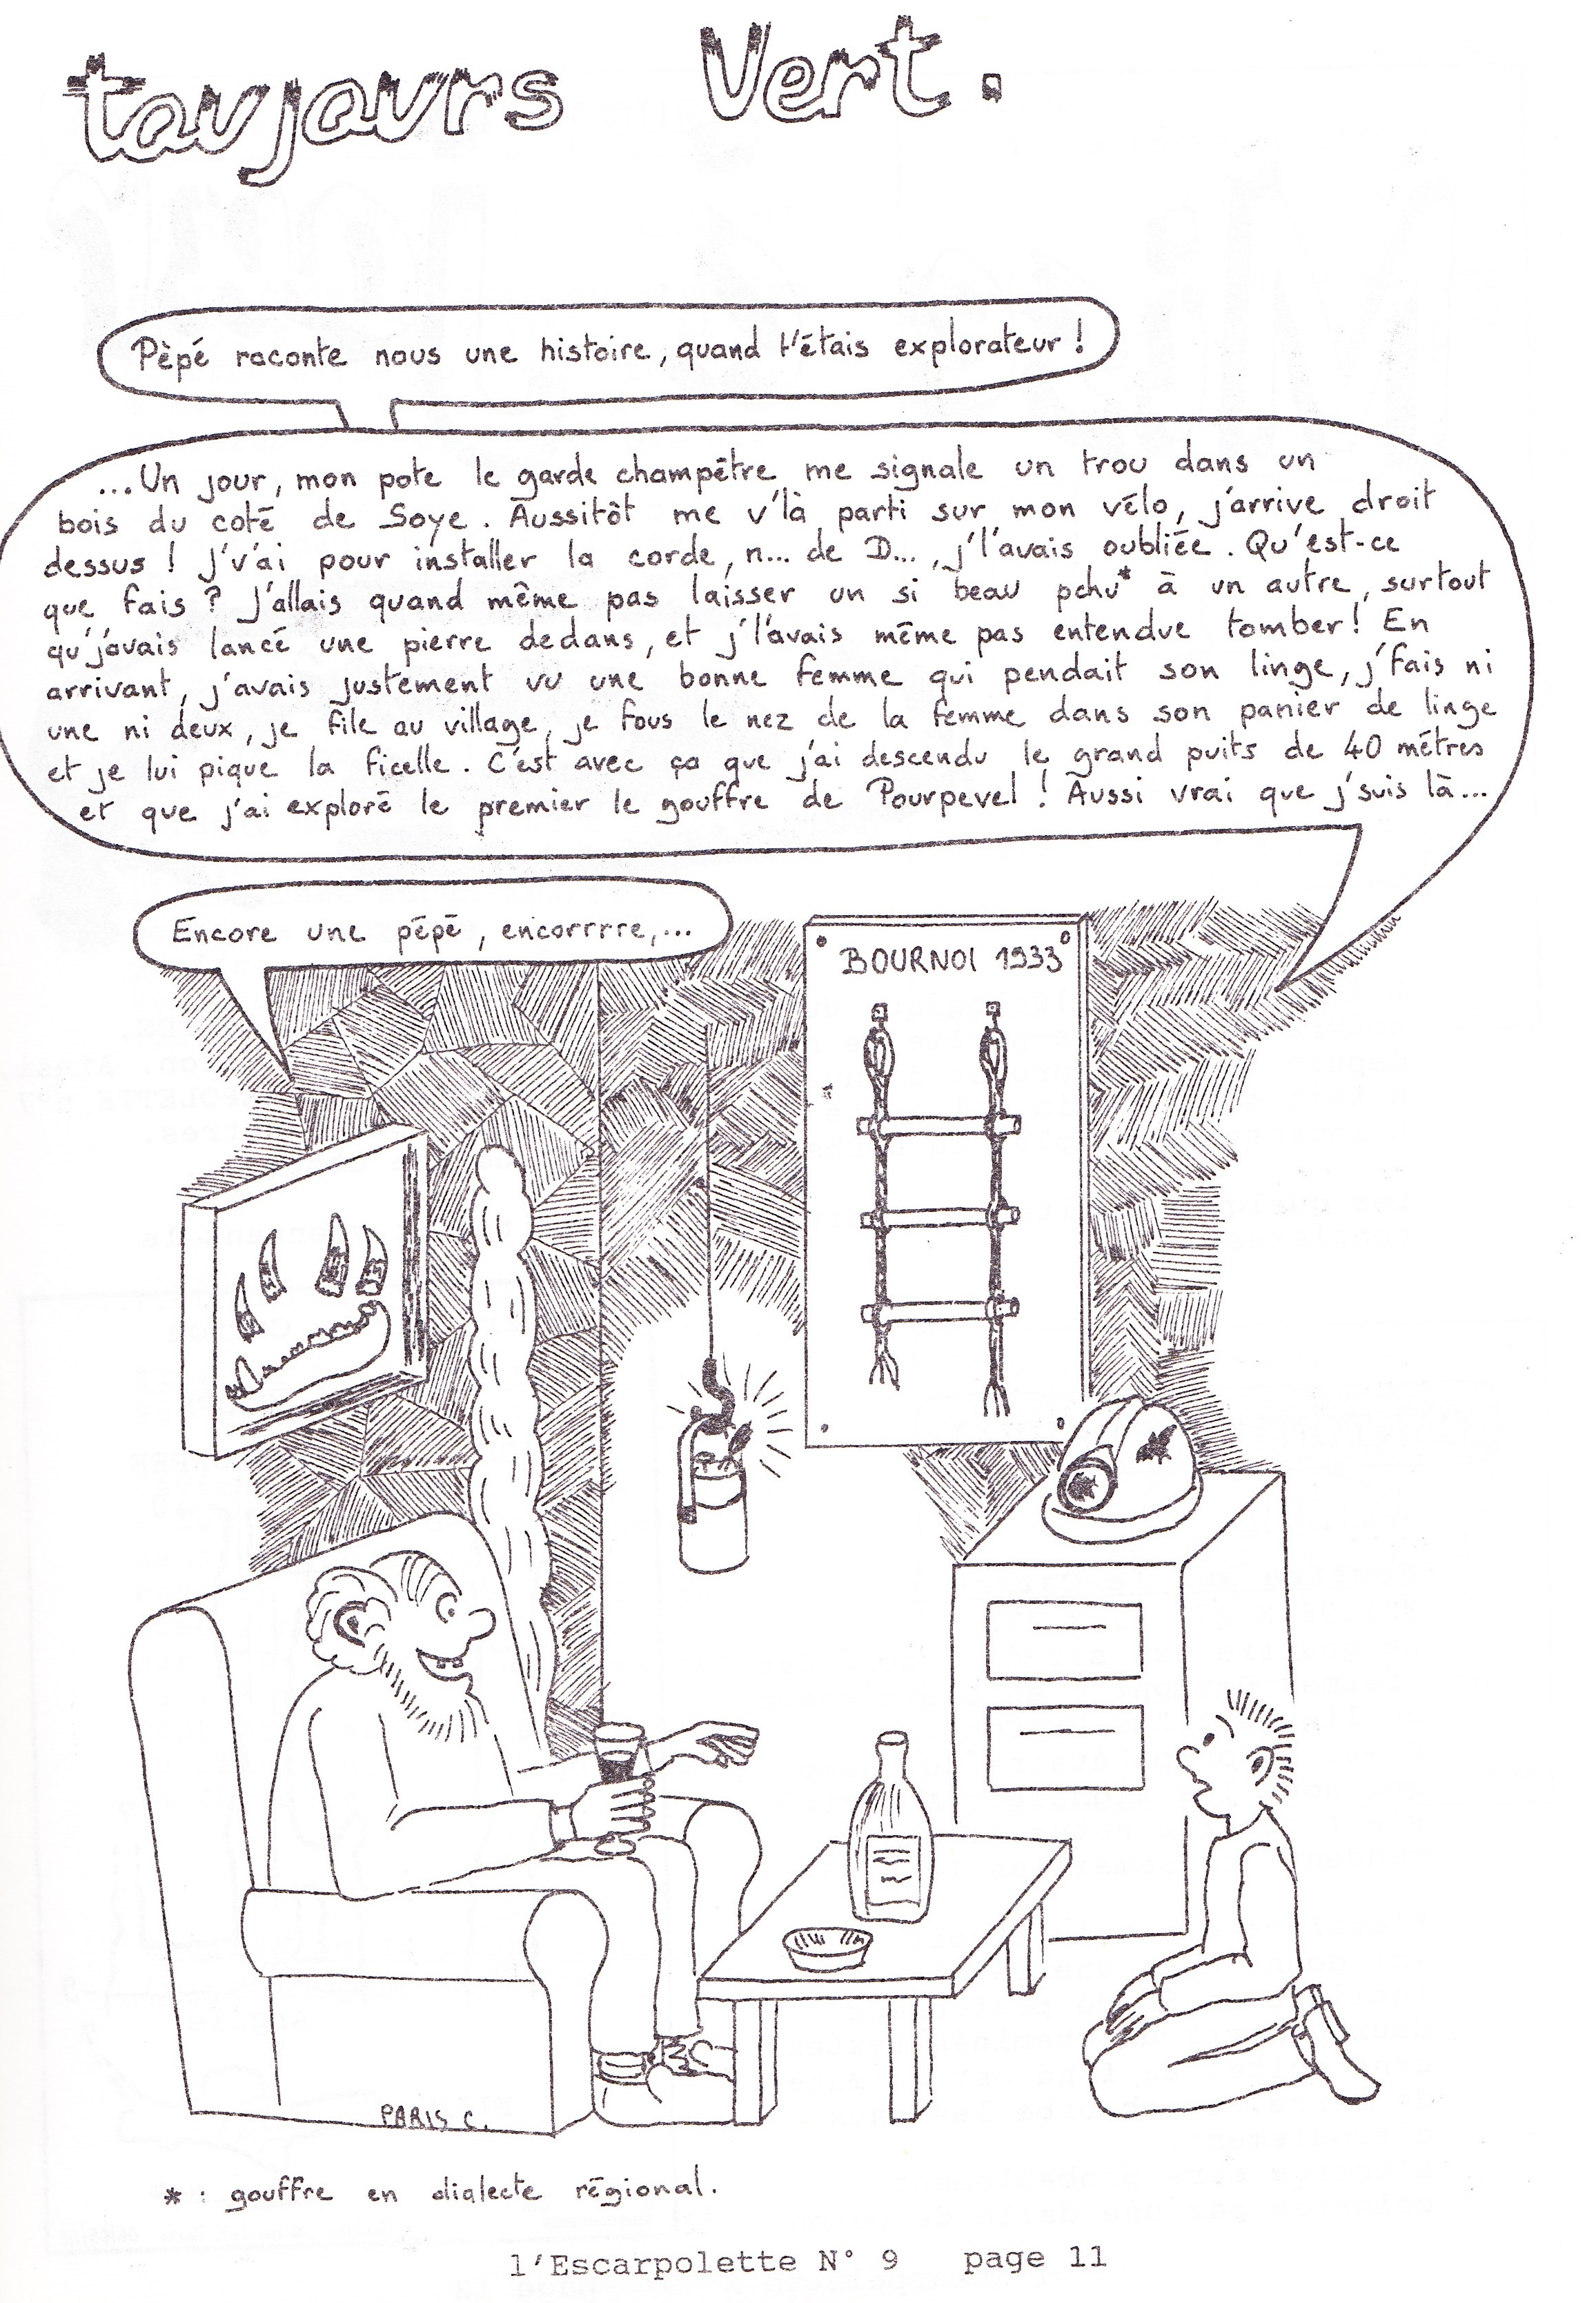 toujours Vert.
Pèpé raconte nous une histoire, quand t'étais explorateur !
...Un jour, mon pote le garde champêtre me signale un trou dans un
bois du coté de Soye. Aussitôt me v'là parti sur mon vélo, j'arrive droit
dessus ! J'v'ai pour installer la corde, n... de D..., j'l'avais oubliée. Qu'est-ce
que fais ? J'allais quand même pas laisser un si beau pchu* à un autre, surtout
qu'j'avais lancé une pierre dedans, et j'l'avais même pas entendue tomber ! En
arrivant, j'avais justement vu une bonne femme qui pendait son linge, j'fais ni
une ni deux, je file au village, je fous le nez de la femme dans son panier de linge
et je lui pique la ficelle. C'est avec ça que j'ai descendu le grand puits de 40 mètres
et que j'ai exploré le premier le gouffre de Pourpevel ! Aussi vrai que j'suis là...
Encore une pépé, encorrrre,...
BOURNOI 1933
PARIS C.
* : gouffre en dialecte régional.
l'Escarpolette N° 9 page 11